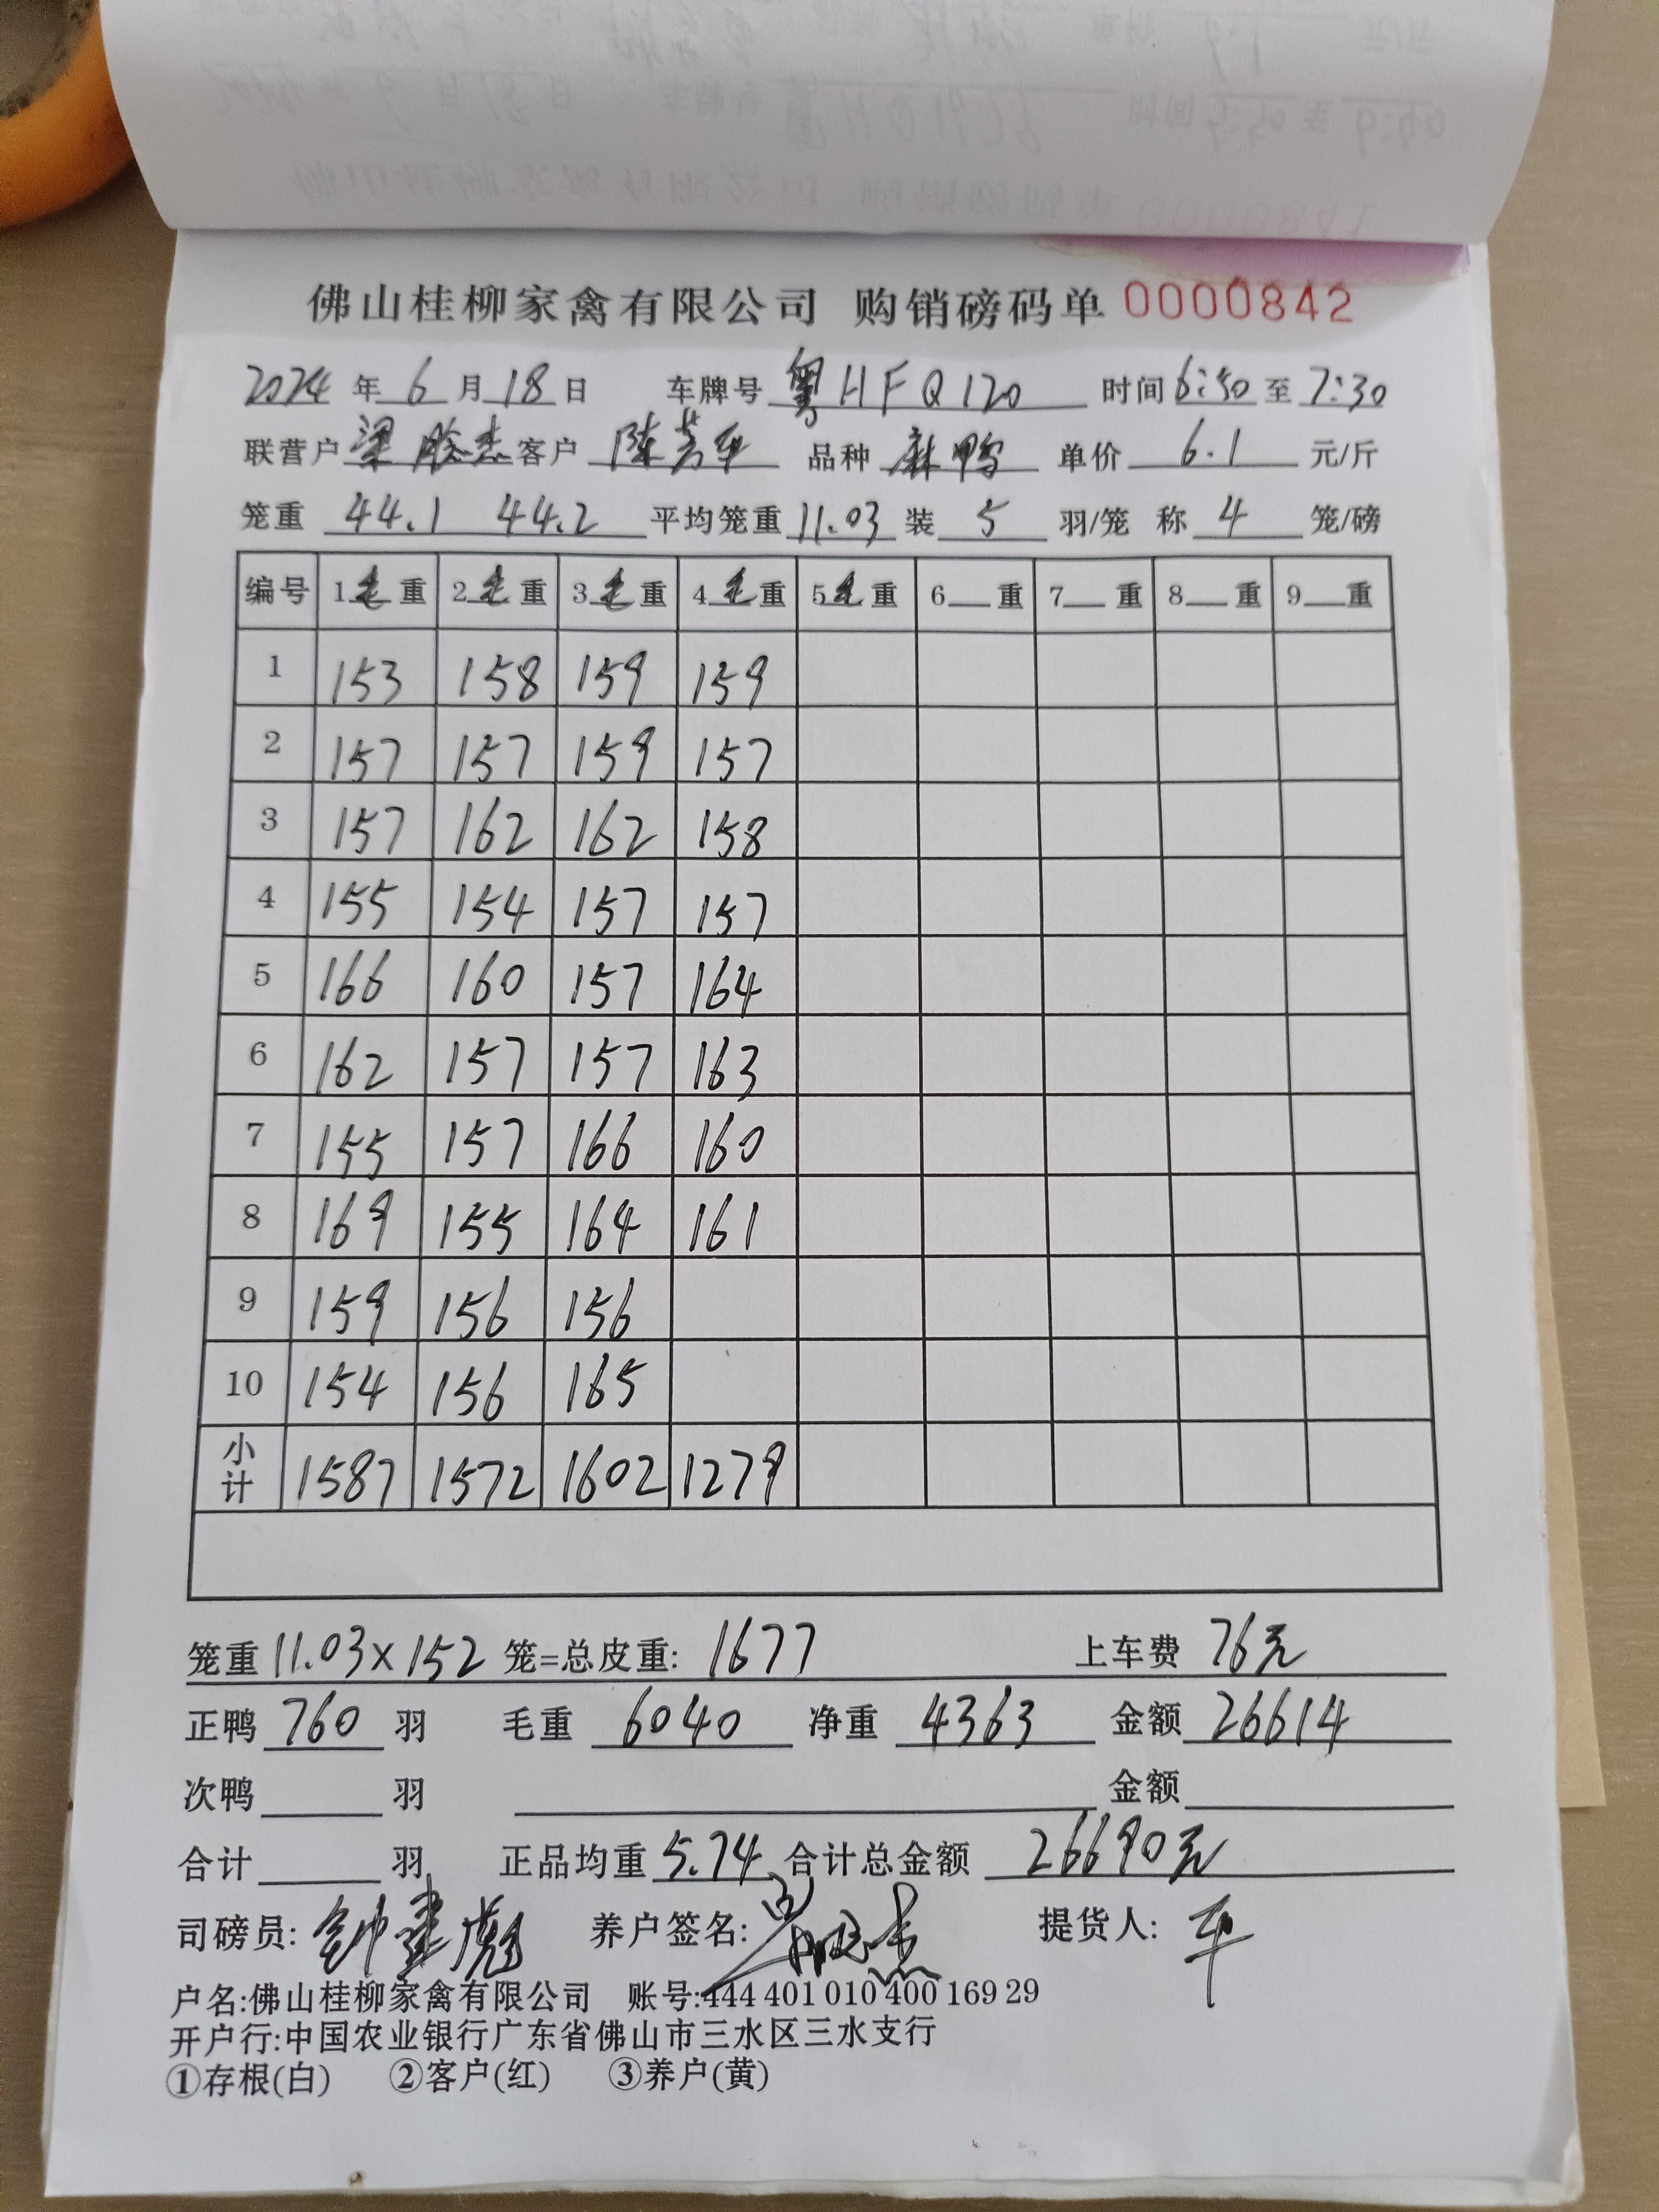 佛山桂柳家禽有限公司 购销磅码单 0000842
2024 年 6 月 18 日 车牌号 粤HFQ120 时间 6:50 至 7:30
联营户 梁 杰 客户 陈芳 品种 麻鸭 单价 6.1 元/斤
笼重 44.1 44.2 平均笼重 11.03 装 5 羽/笼 称 4 笼/磅
编号 1毛重 2毛重 3毛重 4毛重 5毛重 6 重 7 重 8 重 9 重
1 153 158 159 159
2 157 157 159 157
3 157 162 162 158
4 155 154 157 157
5 166 160 157 164
6 162 157 157 163
7 155 157 166 160
8 169 155 164 161
9 159 156 156
10 154 156 165
小计 1587 1572 1602 1279
笼重 11.03×152 笼=总皮重: 1677 上车费 76元
正鸭 760 羽 毛重 6040 净重 4363 金额 26614
次鸭 羽 金额
合计 羽 正品均重 5.74 合计总金额 26690元
司磅员: 钟建彪 养户签名: 提货人:
户名:佛山桂柳家禽有限公司 账号:444 401 010 400 169 29
开户行:中国农业银行广东省佛山市三水区三水支行
①存根(白) ②客户(红) ③养户(黄)